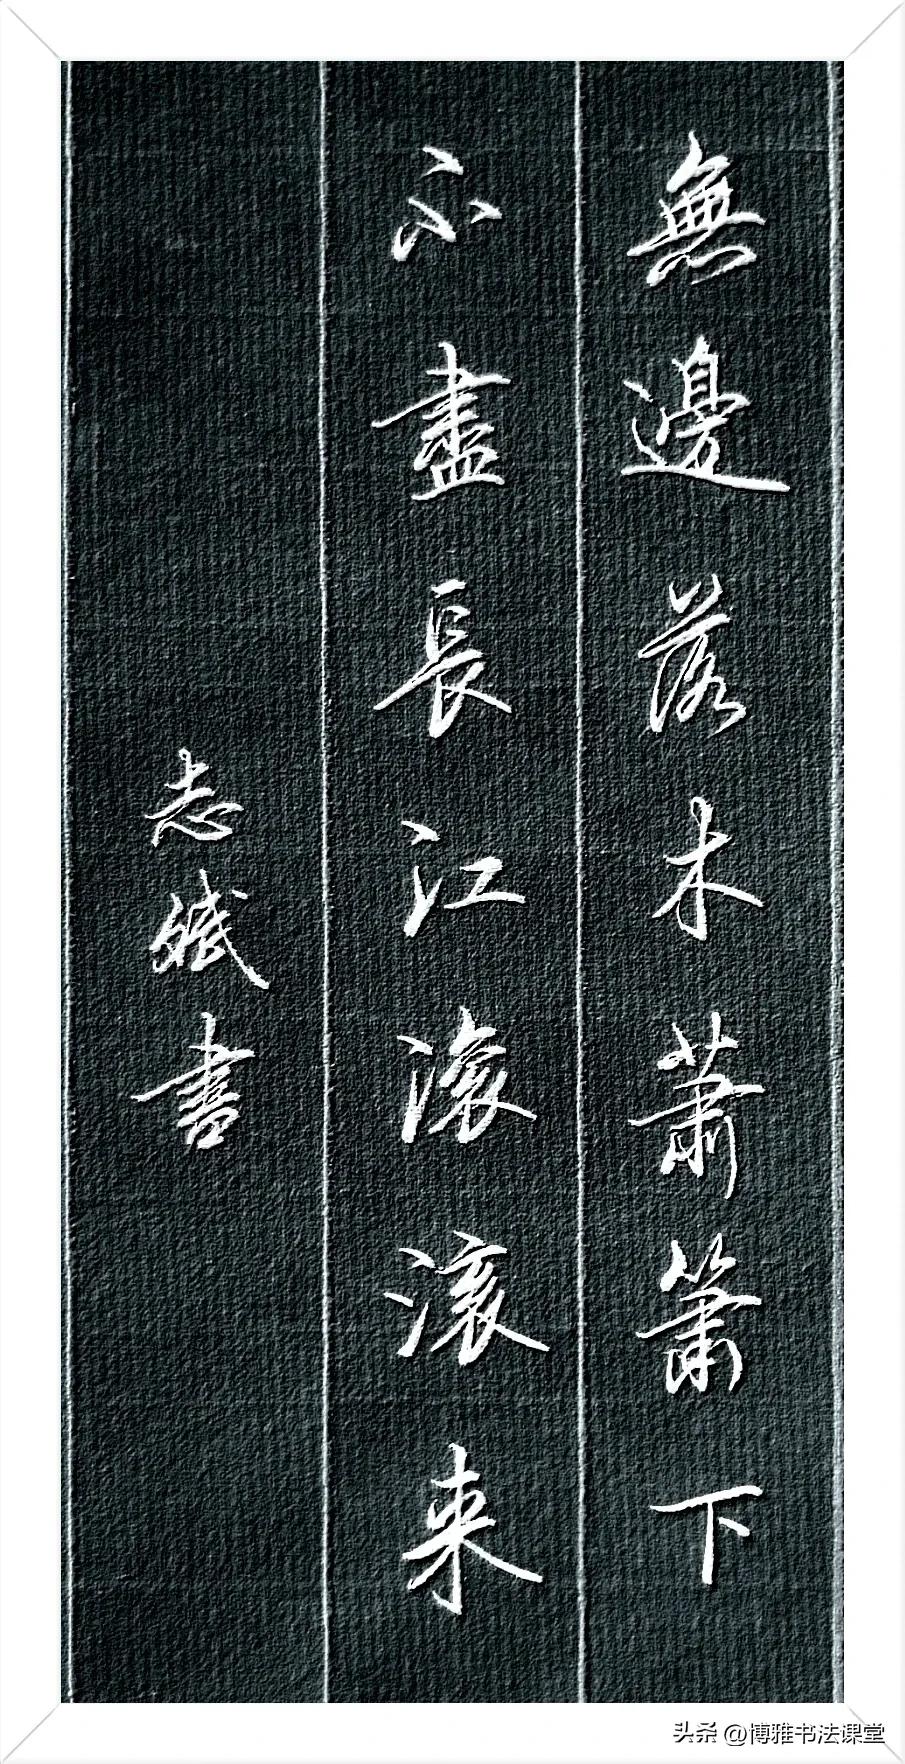 無邊落木蕭簫下
不盡長江滾滾来
志書
头条 @博雅书法课堂